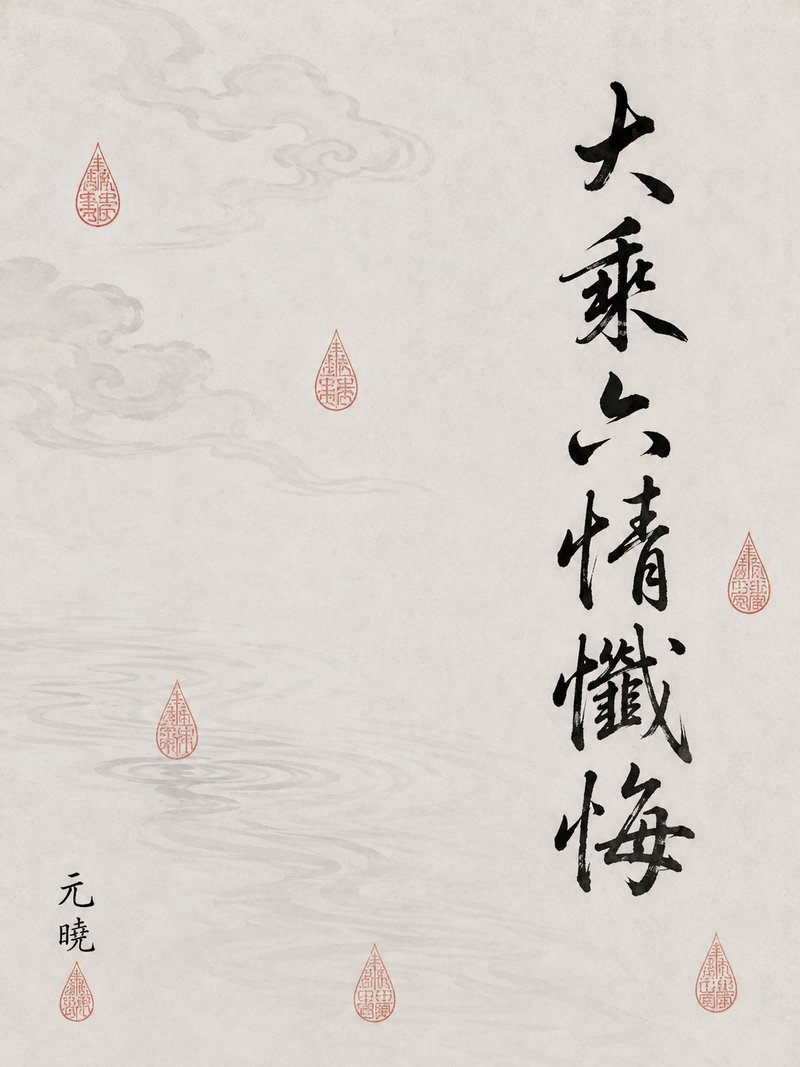 大乘六情懺悔
元曉